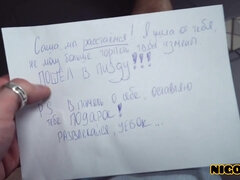 Саша, мы расстаёмся! Я ушла от тебя,
не могу больше терпеть твои измены.
ПОШЁЛ В ПИЗДУ!!!
P.S. В память о себе, оставляю
тебе ПОДАРОК!
РАЗВЛЕКАЙСЯ, УЁБОК...
NICO